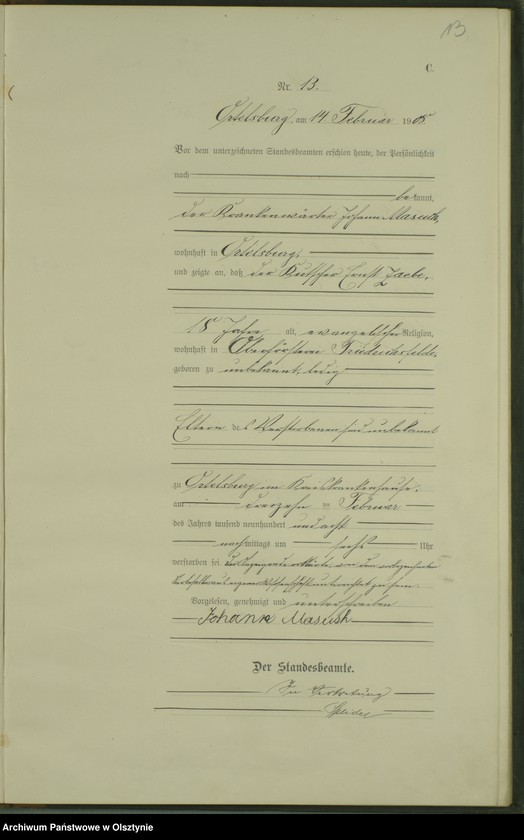 13
C.
Nr. 13.
Ortelsburg, am 14 Februar 1908
Vor dem unterzeichneten Standesbeamten erschien heute, der Persönlichkeit
nach
bekannt,
der Krankenwärter Johann Masuch,
wohnhaft in Ortelsburg,
und zeigte an, daß der Kutscher Ernst
18 Jahre alt, evangelischer Religion,
wohnhaft in Oberförsterei
geboren zu unbekannt, ledig
Eltern des Verstorbenen sind unbekannt
zu Ortelsburg im Kreiskrankenhause,
am dreizehn ten Februar
des Jahres tausend neunhundert und acht
nachmittags um sechs Uhr
verstorben sei
Vorgelesen, genehmigt und unterschrieben
Johann Masuch
Der Standesbeamte.
In Vertretung
Archiwum Państwowe w Olsztynie